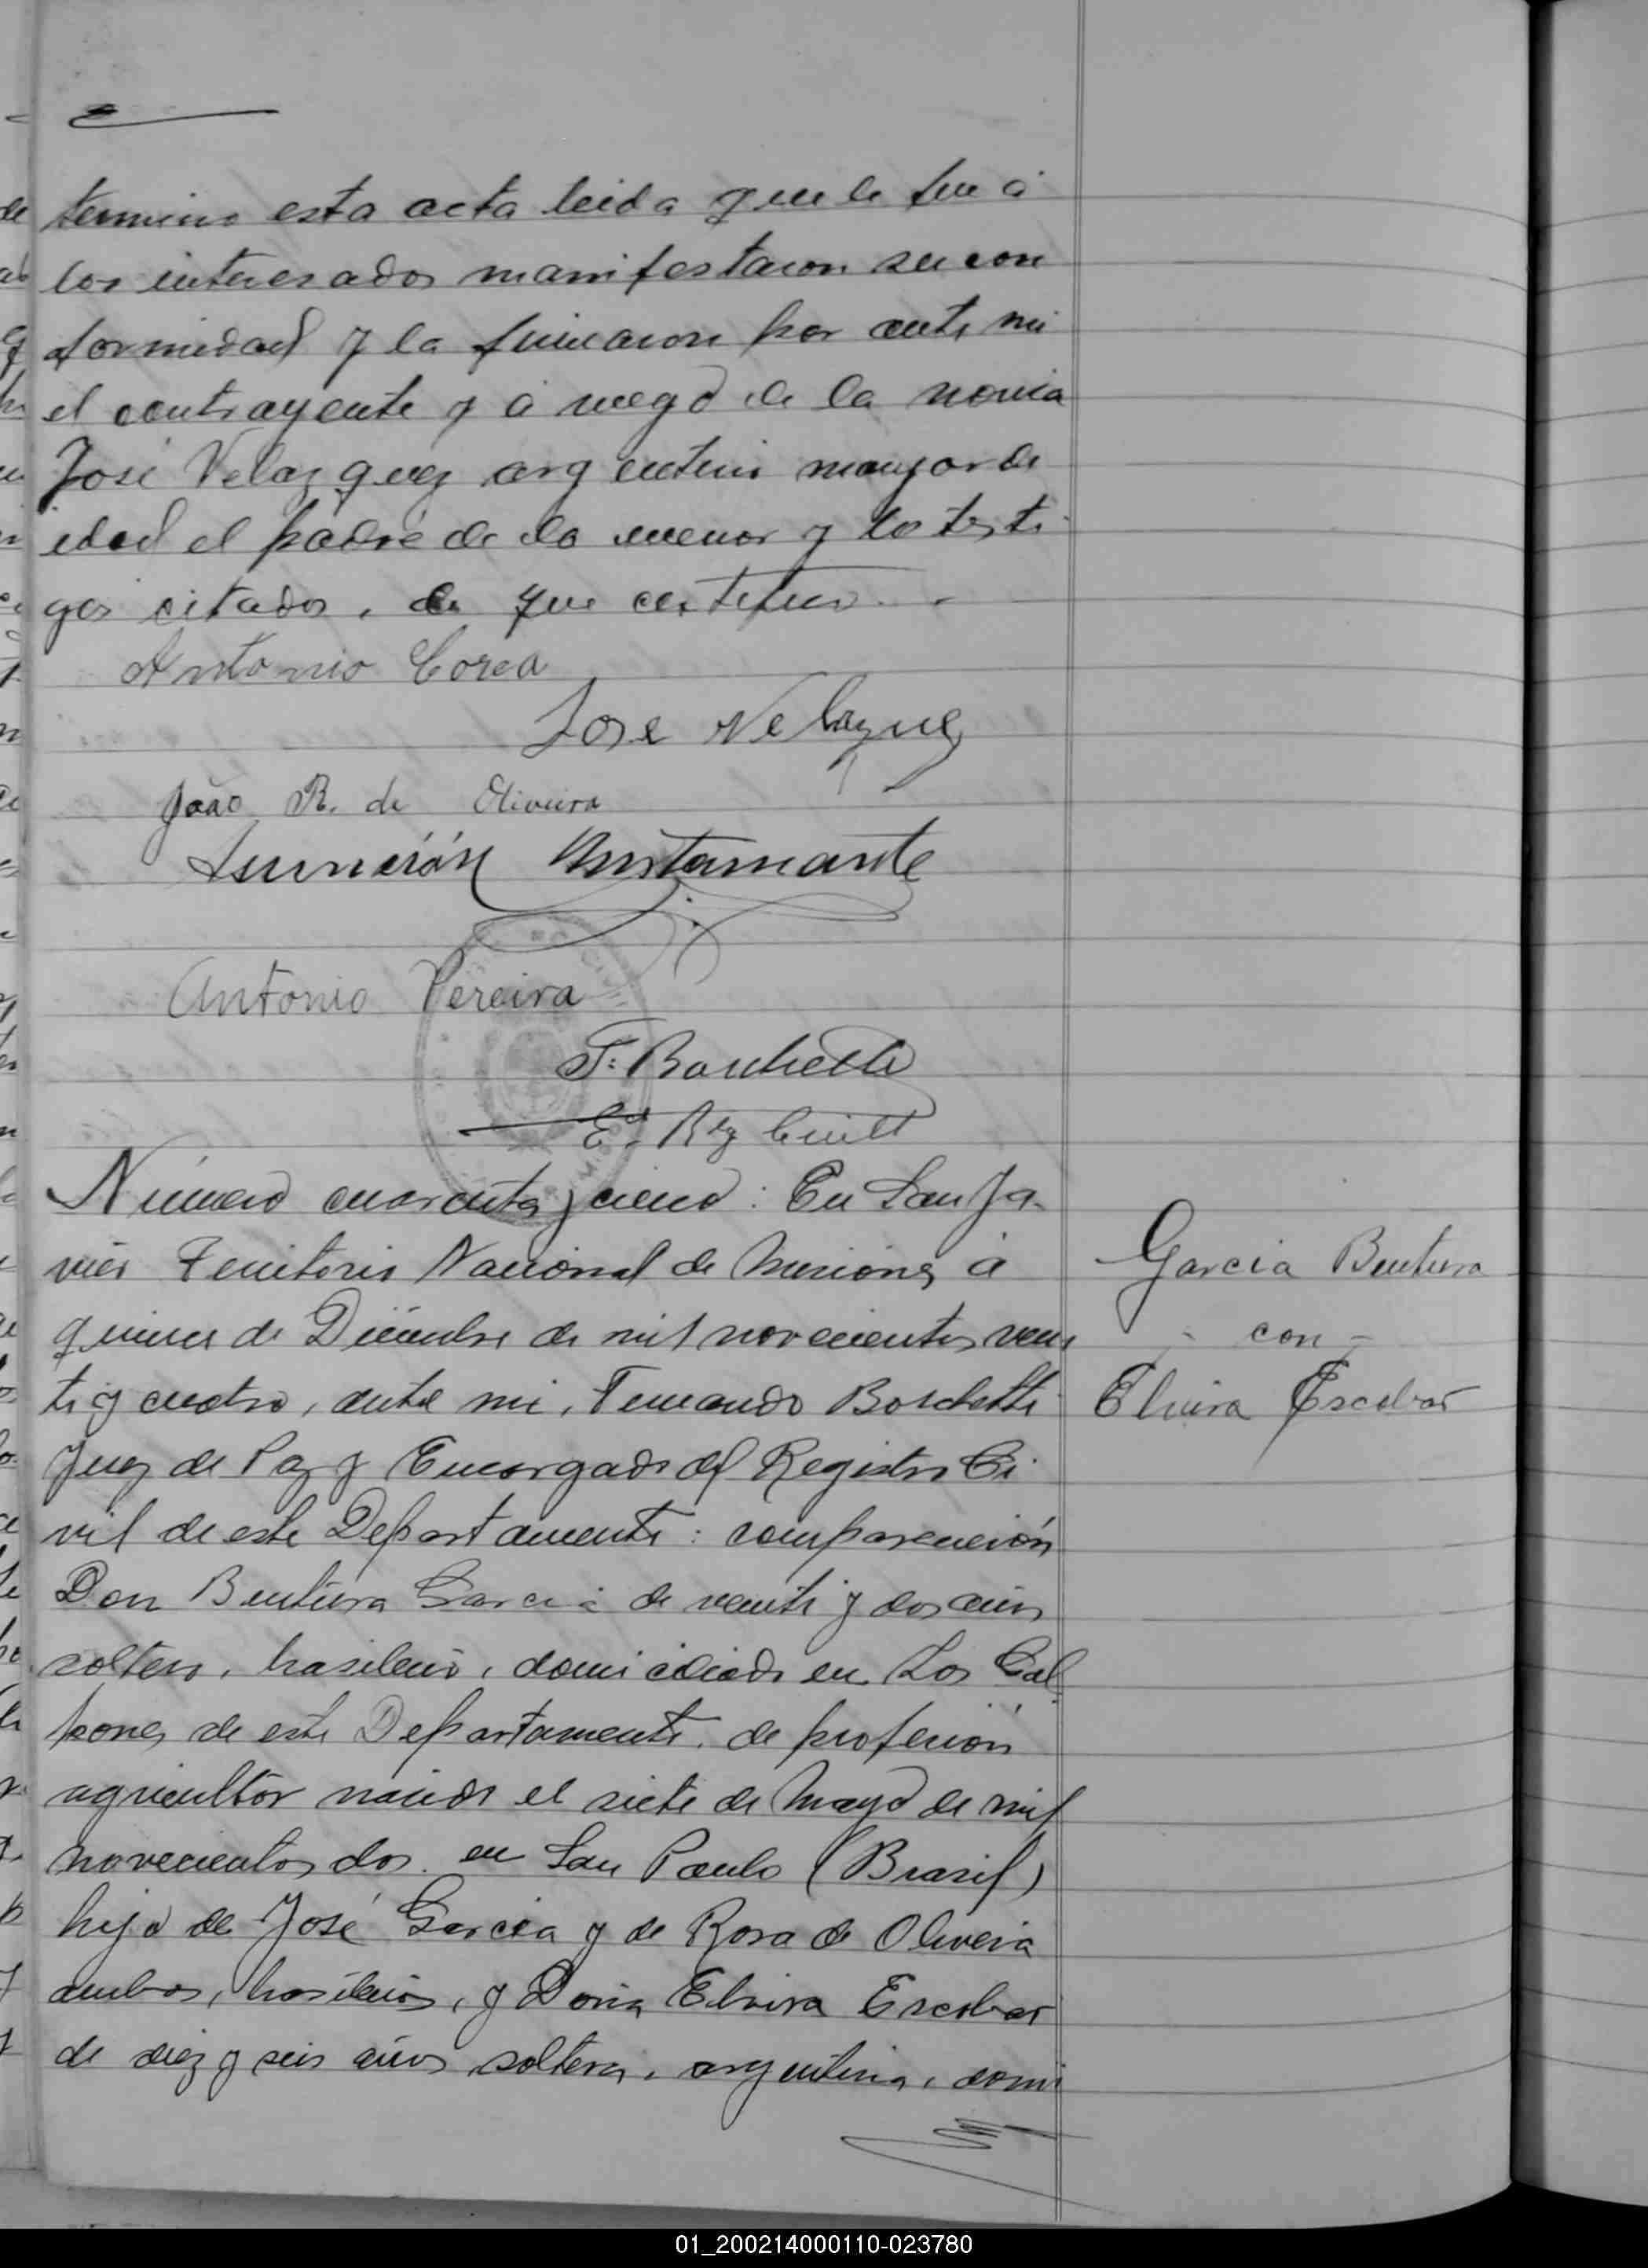 termino esta acta leida que le fue á
los interesados manifestaron su con
formidad y la firmaron por ante mi
el contrayente y á ruego de la novia
José Velazquez argentino mayor de
edad el padre de la menor y los testi
gos citados, de que certifico.
Antonio Corea
Jose Velazquez
João R. de Oliveira
Asunción Bustamante
Antonio Pereira
F. Boschetti
Número cuarenta y cinco: En San Ja-
vier Territorio Nacional de Misiones á
quince de Diciembre de mil novecientos vein
ti y cuatro, ante mi, Fernando Boschetti
Juez de Paz y Encargado del Registro Ci-
vil de este Departamento: comparención
Don Bentura Garcia de veinti y dos años
soltero, brasilero, domiciliado en Los Gal
pones de este Departamento. de profesión
agricultor nacido el siete de Mayo de mil
novecientos dos. en San Paulo (Brasil)
hijo de José Garcia y de Rosa de Oliveira
ambos, brasileros, y Doña Elvira Escobar
de diez y seis años soltera, argentina, domi
Garcia Bentura
- con -
Elvira Escobar
01_200214000110-023780